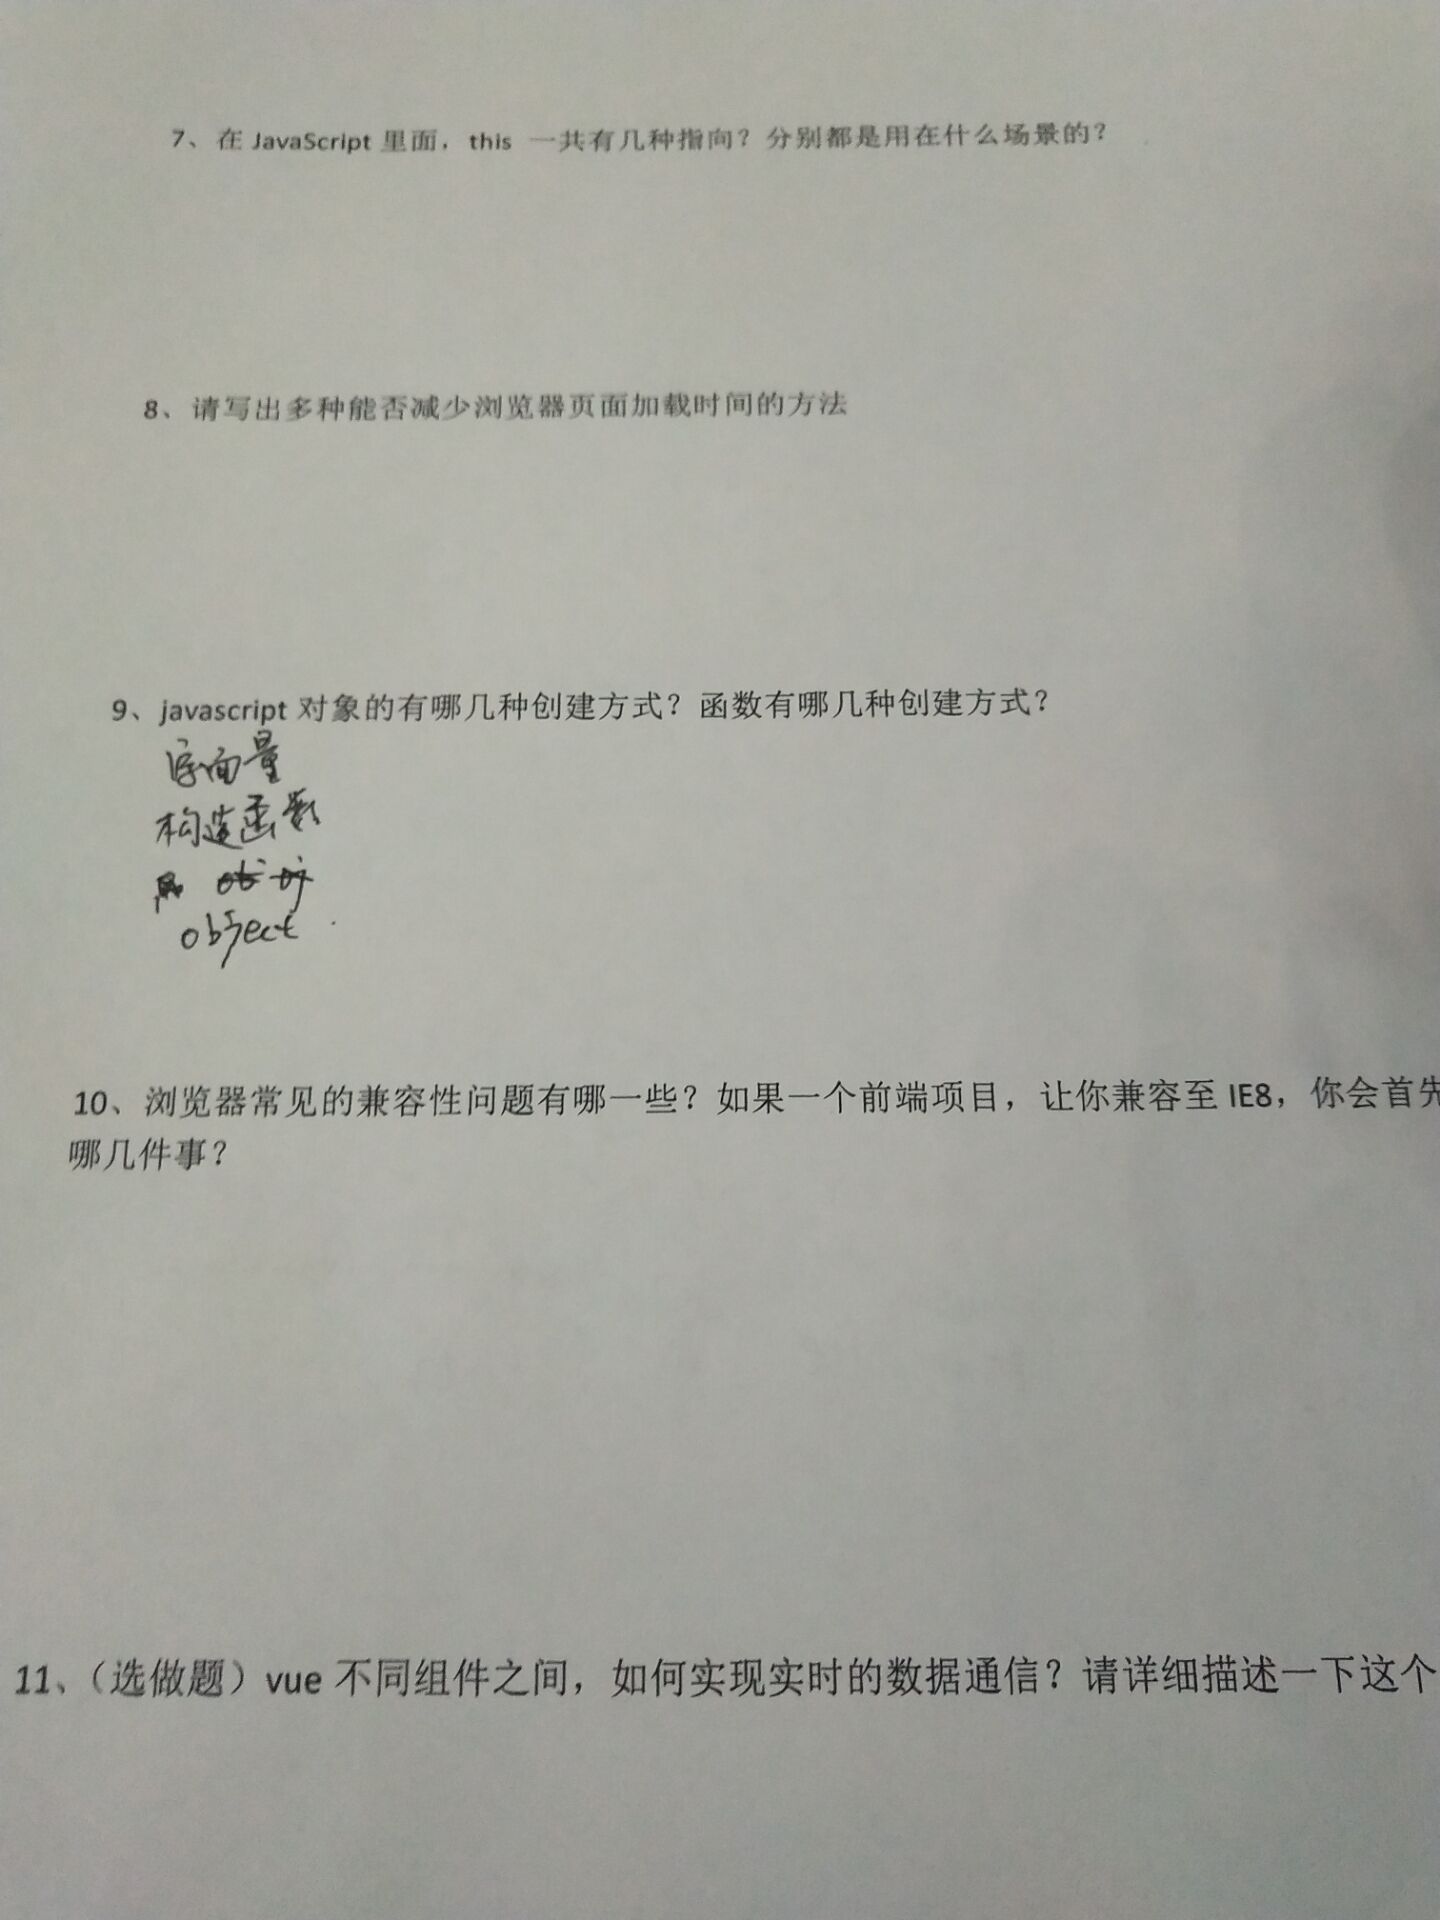 7、在 JavaScript 里面，this 一共有几种指向？分别都是用在什么场景的？
8、请写出多种能否减少浏览器页面加载时间的方法
9、javascript 对象的有哪几种创建方式？函数有哪几种创建方式？
字面量
构造函数
object
10、浏览器常见的兼容性问题有哪一些？如果一个前端项目，让你兼容至 IE8，你会首先
哪几件事？
11、（选做题）vue 不同组件之间，如何实现实时的数据通信？请详细描述一下这个